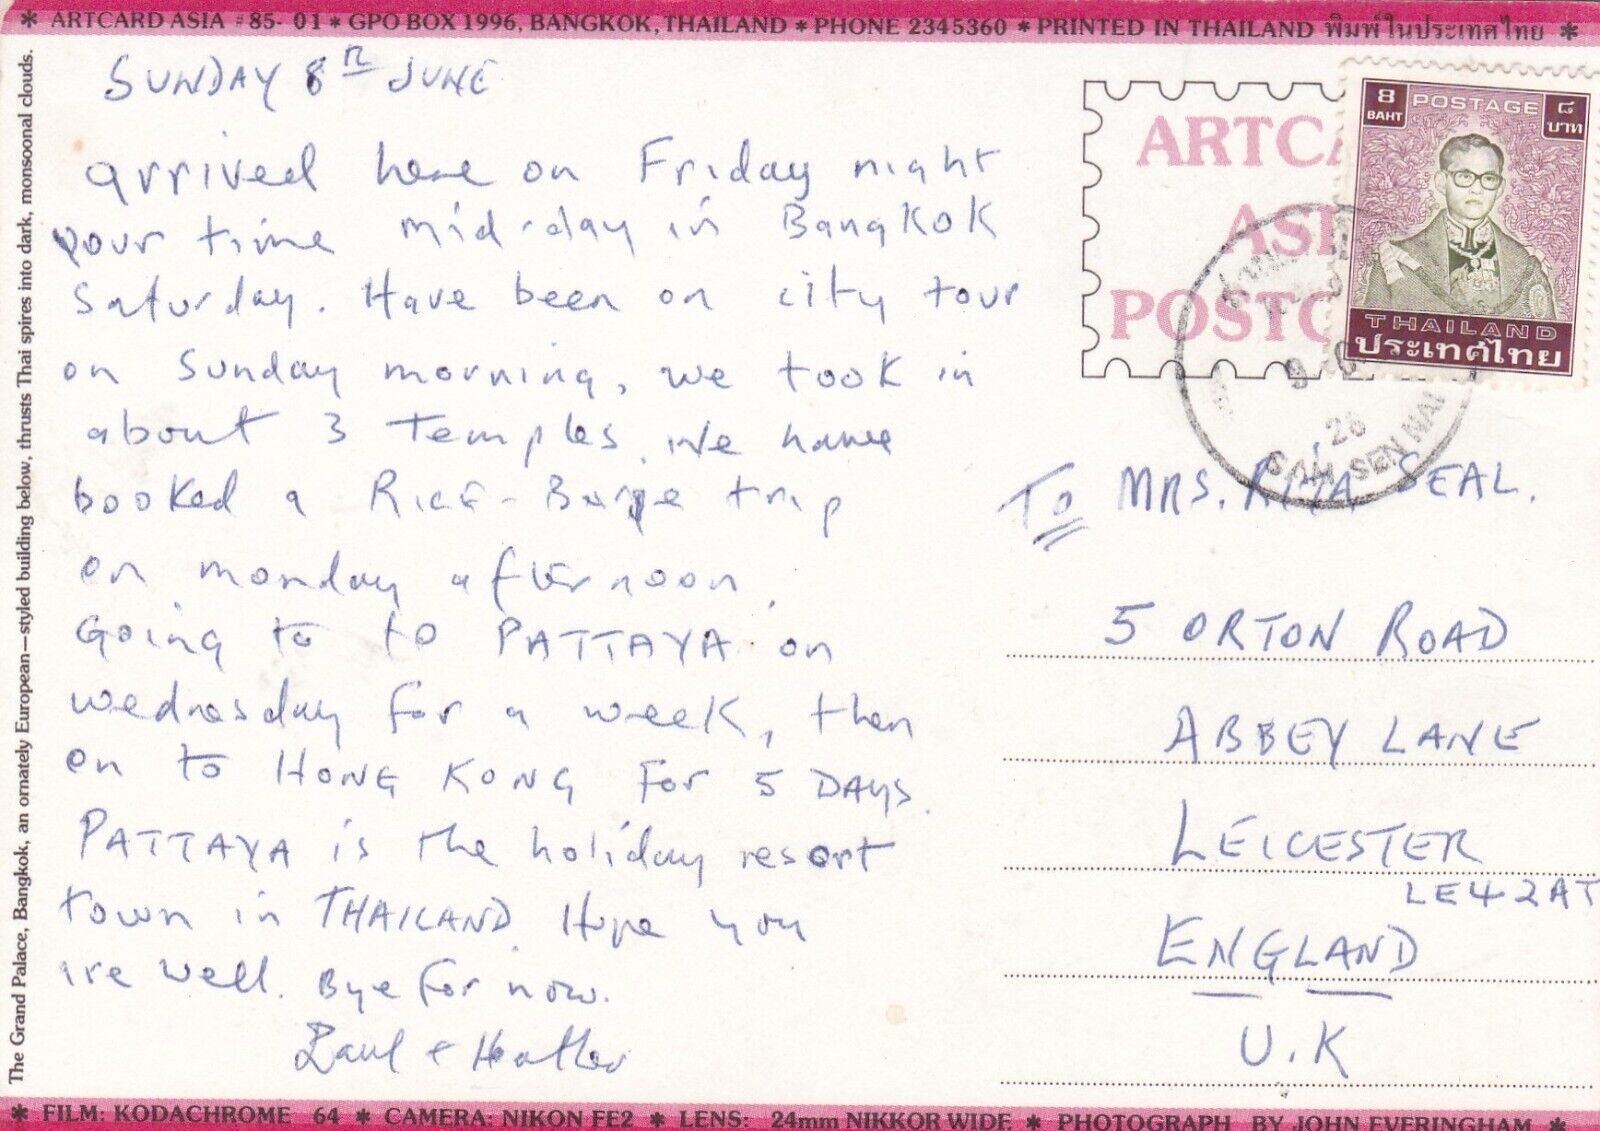 * ARTCARD ASIA #85-01 * GPO BOX 1996, BANGKOK, THAILAND * PHONE 2345360 * PRINTED IN THAILAND พิมพ์ในประเทศไทย *
The Grand Palace, Bangkok, an ornately European—styled building below, thrusts Thai spires into dark, monsoonal clouds.
SUNDAY 8TH JUNE
arrived here on Friday night
your time mid-day in Bangkok
Saturday. Have been on city tour
on Sunday morning, we took in
about 3 Temples. We have
booked a RICE-Barge trip
on monday afternoon.
Going to to PATTAYA on
wednesday for a week, then
on to HONG KONG For 5 DAYS.
PATTAYA is the holiday resort
town in THAILAND. Hope you
are well. Bye for now.
Paul + Heather
ARTC
ASI
POSTC
8 BAHT POSTAGE ๘ บาท
THAILAND
ประเทศไทย
9
28
SAM SEN NAI
To MRS. RITA SEAL.
5 ORTON ROAD
ABBEY LANE
LEICESTER
LE4 2AT
ENGLAND
U.K
* FILM: KODACHROME 64 * CAMERA: NIKON FE2 * LENS: 24mm NIKKOR WIDE * PHOTOGRAPH BY JOHN EVERINGHAM *